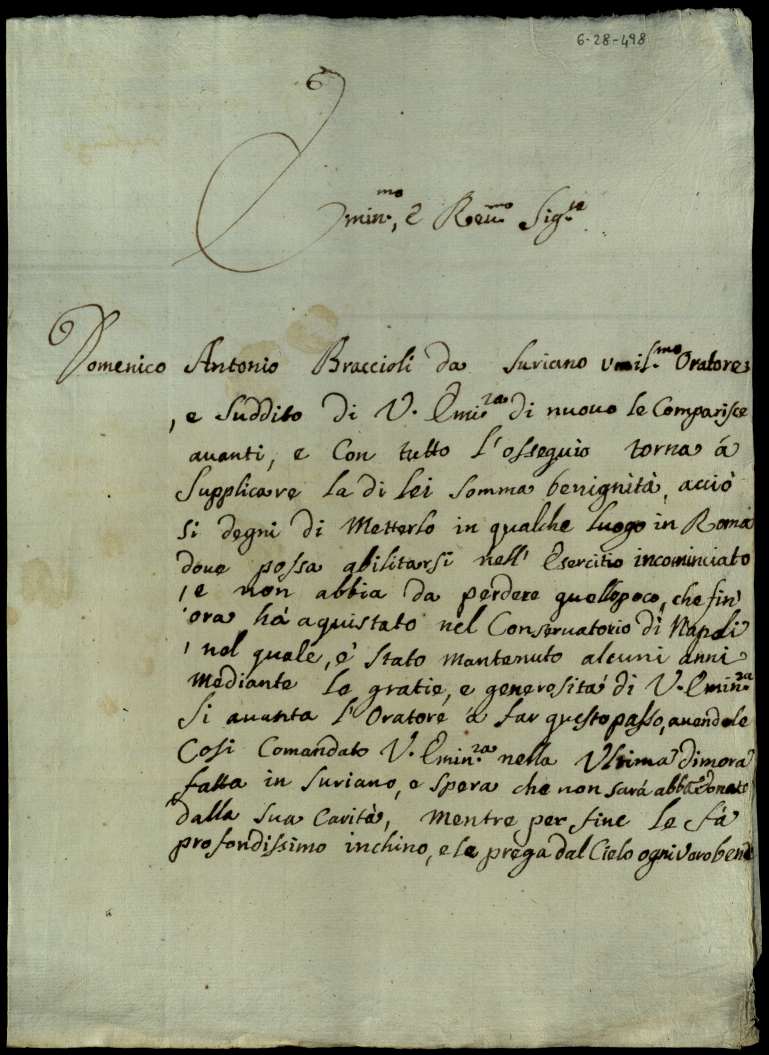 6-28-498
Emin.mo, e Reu.mo Sig.re
Domenico Antonio Braccioli da Suriano vmil.mo Oratore
, e Suddito di V. Emi.za di nuouo le Comparisce
auanti, e Con tutto l'osseguio torna á
Supplicare la di lei somma benignità, acciò
si degni di Metterlo in qualche luogo in Roma
doue possa abilitarsi nell' Esercitio incominciato
, e non abbia da perdere quellopoco, che fin'
ora há aquistato nel Conseruatorio di Napoli
, nel quale, é stato mantenuto alcuni anni
Mediante le gratie, e generosita' di V. Emin.za
Si auanta l'Oratore á far questo passo, auendole
Cosi Comandato V. Emin.za nella Vltima dimora
fatta in Suriano, e spera che non sará abbandonato
dalla sua Carità, Mentre per fine le fá
profondissimo inchino, e le prega dal Cielo ogni vero bene